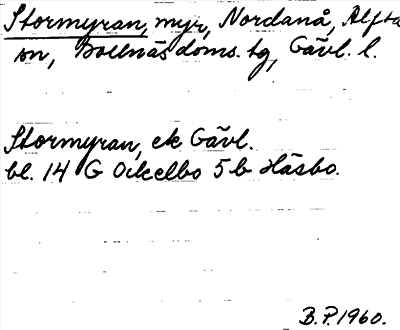 Stormyran, myr, Nordanå, Alfta
sn, Bollnäs doms. tg, Gävl. l.
Stormyran, ek Gävl.
bl. 14 G Ockelbo 5b Häsbo.
B.P. 1960.